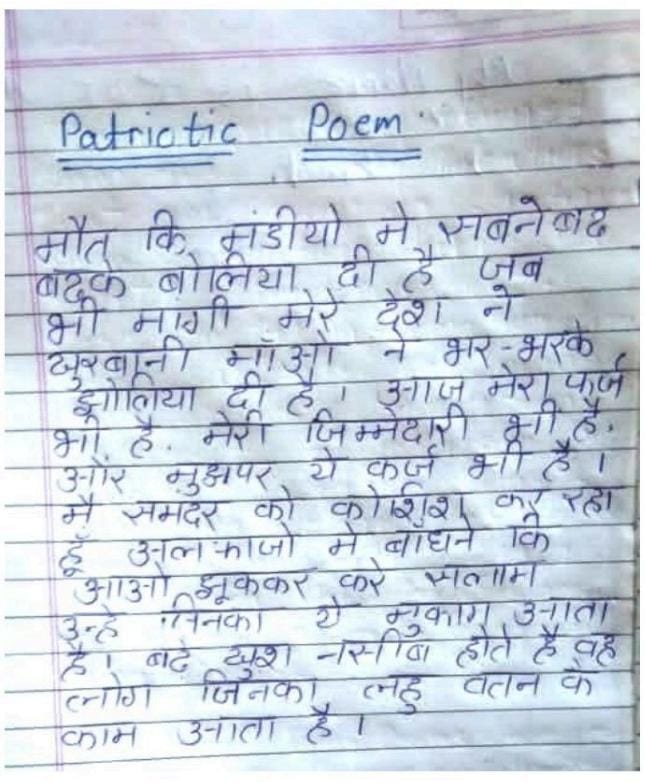 Patriotic Poem.
मौत कि मंडीयो मे सबने बढ
बढके बोलिया दी है जब
भी मागी मेरे देश ने
खुरबानी माँओ ने भर-भरके
झोलिया दी है। आज मेरा फर्ज
भी है. मेरी जिम्मेदारी भी है.
और मुझपर ये कर्ज भी है।
मै समदर को कोशिश कर रहा
हूँ अलफाजो मे बाधने कि
आओ झूककर करे सलाम
उन्हे जिनका ये मुकाम आता
है। बढे खुश नसीब होते है वह
लोग जिनका लहु वतन के
काम आता है।